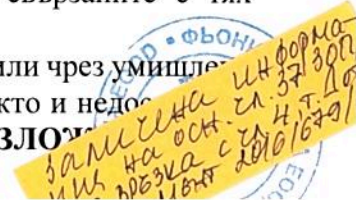 свързаните с тях
или чрез умишлен
кто и недос
ЗЛОЖ
ФЬОНИ
ЗАЛИЧЕНА ИНФОРМА-
ЦИЯ НА ОСН. ЧЛ. 37 ЗОП
ВЪВ ВРЪЗКА С ЧЛ. 4, Т. 1
2016/679/